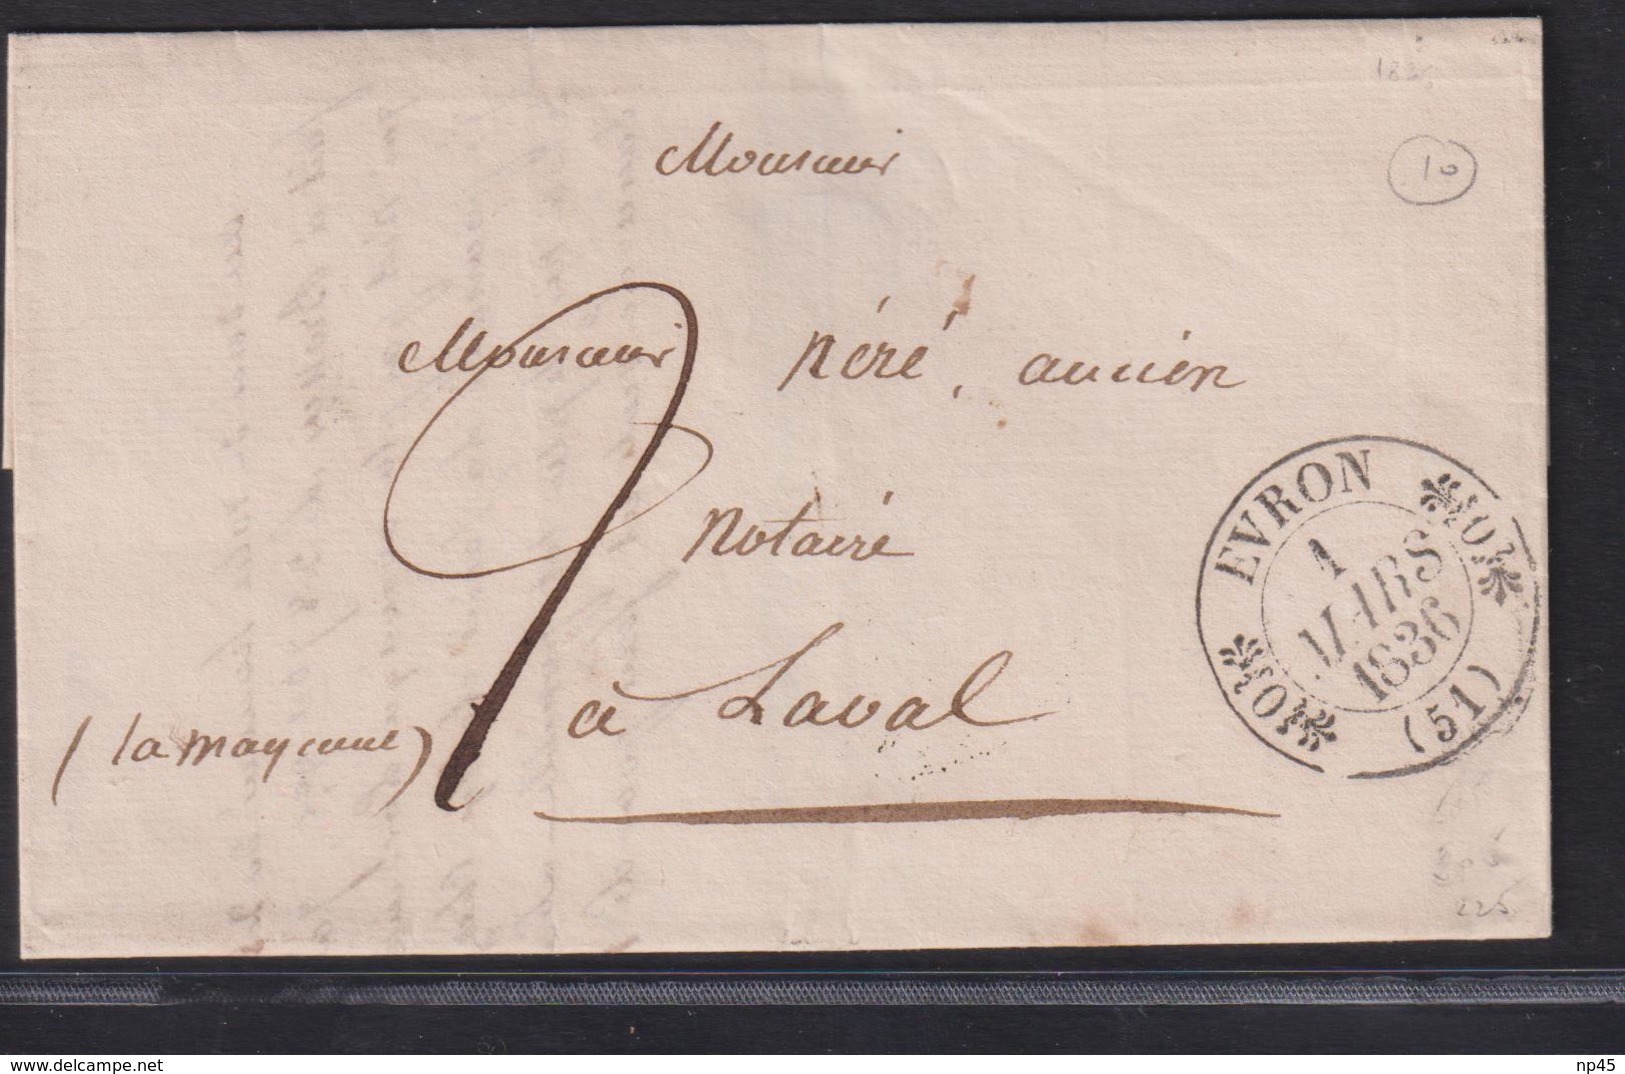 Monsieur
10
Monsieur Néré, ancien
Notaire
à Laval
(la mayenne)
EVRON
1
MARS
1836
(51)
225
© delcampe.net
np45